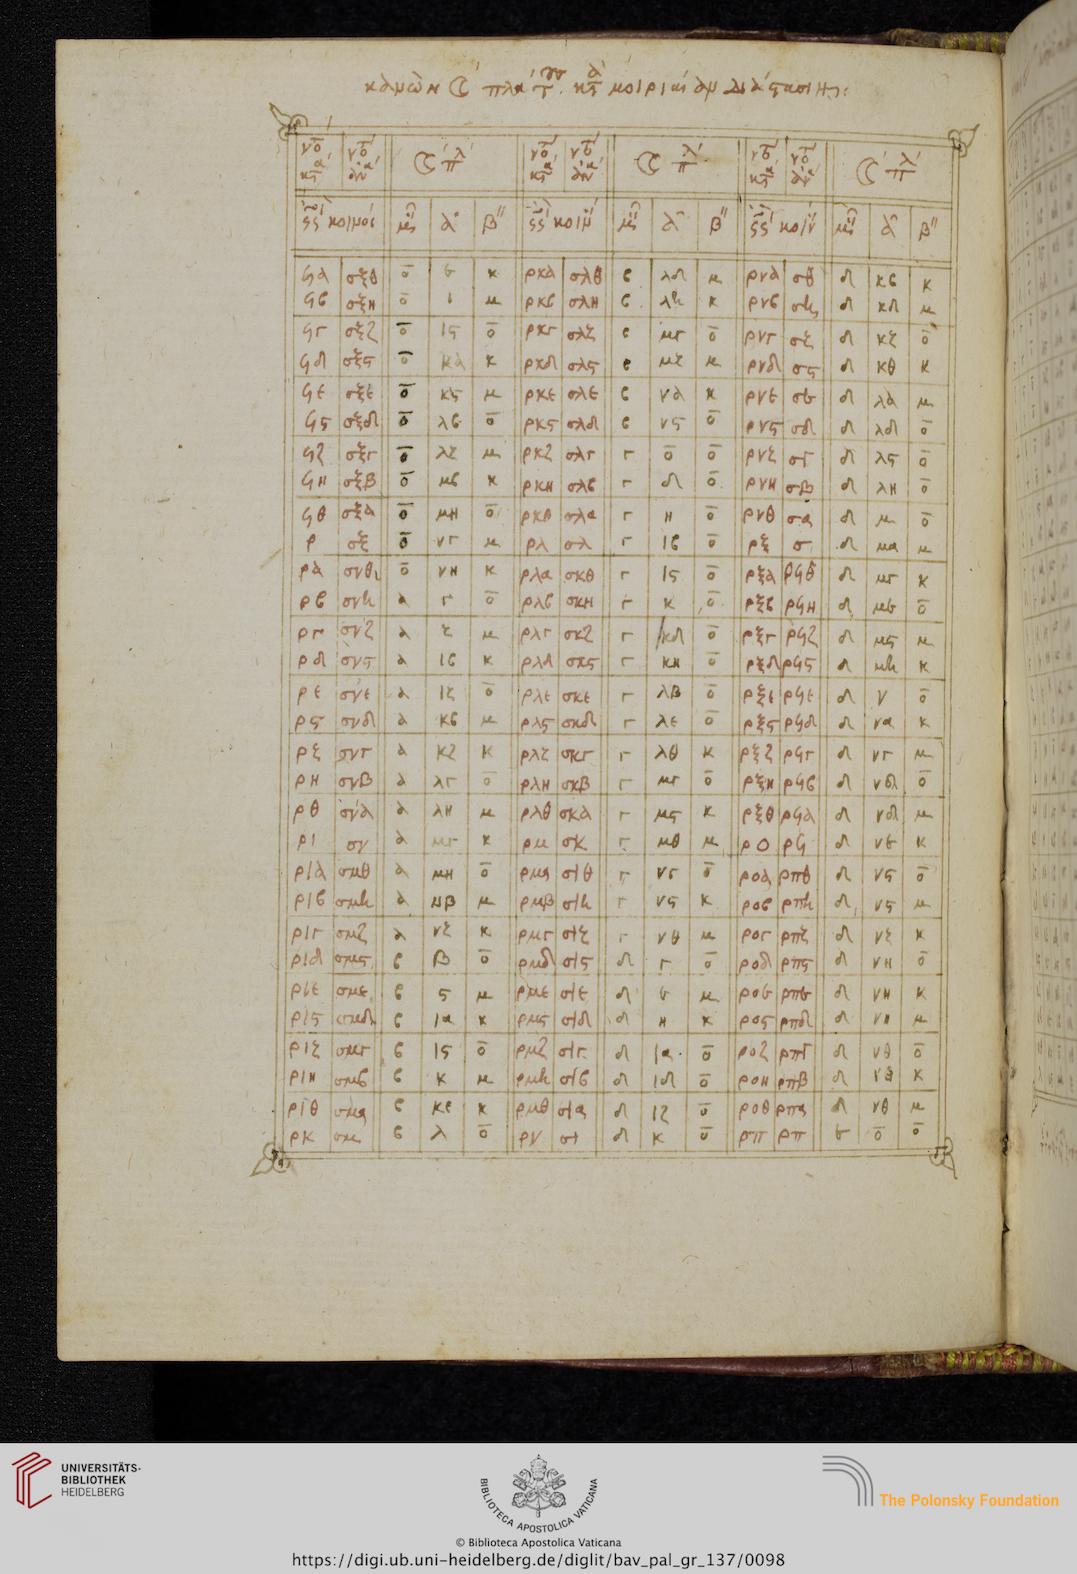 ϟα σξθ ο̄ ε κ ρκα σλθ β λδ μ ρνα σθ δ κβ κ
ϟβ σξη ο̄ ι μ ρκβ σλη β λη κ ρνβ ση δ κδ μ
ϟγ σξζ ο̄ ις ο̄ ρκγ σλζ β μγ ο̄ ρνγ σζ δ κζ ο̄
ϟδ σξς ο̄ κα κ ρκδ σλς β μζ κ ρνδ σς δ κθ κ
ϟε σξε ο̄ κς μ ρκε σλε β να κ ρνε σε δ λα μ
ϟς σξδ ο̄ λβ ο̄ ρκς σλδ β νς ο̄ ρνς σδ δ λδ ο̄
ϟζ σξγ ο̄ λζ μ ρκζ σλγ γ ο̄ ο̄ ρνζ σγ δ λς ο̄
ϟη σξβ ο̄ μβ κ ρκη σλβ γ δ ο̄ ρνη σβ δ λη ο̄
ϟθ σξα ο̄ μη ο̄ ρκθ σλα γ η ο̄ ρνθ σα δ μ ο̄
ρ σξ ο̄ νγ μ ρλ σλ γ ιβ ο̄ ρξ σ δ μα μ
ρα σνθ ο̄ νη κ ρλα σκθ γ ις ο̄ ρξα ρϟθ δ μγ κ
ρβ σνη α γ ο̄ ρλβ σκη γ κ ο̄ ρξβ ρϟη δ με ο̄
ργ σνζ α ζ μ ρλγ σκζ γ κδ ο̄ ρξγ ρϟζ δ μς μ
ρδ σνς α ιβ κ ρλδ σκς γ κη ο̄ ρξδ ρϟς δ μη κ
ρε σνε α ιζ ο̄ ρλε σκε γ λβ ο̄ ρξε ρϟε δ ν ο̄
ρς σνδ α κβ μ ρλς σκδ γ λε ο̄ ρξς ρϟδ δ να κ
ρζ σνγ α κζ κ ρλζ σκγ γ λθ κ ρξζ ρϟγ δ νγ μ
ρη σνβ α λγ ο̄ ρλη σκβ γ μγ ο̄ ρξη ρϟβ δ νδ ο̄
ρθ σνα α λη μ ρλθ σκα γ μς κ ρξθ ρϟα δ νδ μ
ρι σν α μγ κ ρμ σκ γ μθ μ ρο ρϟ δ νε κ
ρια σμθ α μη ο̄ ρμα σιθ γ νγ ο̄ ροα ρπθ δ νς ο̄
ριβ σμη α νβ μ ρμβ σιη γ νς κ ροβ ρπη δ νς μ
ριγ σμζ α νζ κ ρμγ σιζ γ νθ μ ρογ ρπζ δ νζ κ
ριδ σμς β β ο̄ ρμδ σις δ γ ο̄ ροδ ρπς δ νη ο̄
ριε σμε β ς μ ρμε σιε δ ε μ ροε ρπε δ νη κ
ρις σμδ β ια κ ρμς σιδ δ η κ ρος ρπδ δ νη μ
ριζ σμγ β ις ο̄ ρμζ σιγ δ ια ο̄ ροζ ρπγ δ νθ ο̄
ριη σμβ β κ μ ρμη σιβ δ ιδ ο̄ ροη ρπβ δ νθ κ
ριθ σμα β κε κ ρμθ σια δ ιζ ο̄ ροθ ρπα δ νθ μ
ρκ σμ β λ ο̄ ρν σι δ κ ο̄ ρπ ρπ ε ο̄ ο̄
UNIVERSITÄTS-
BIBLIOTHEK
HEIDELBERG
BIBLIOTECA APOSTOLICA VATICANA
The Polonsky Foundation
© Biblioteca Apostolica Vaticana
https://digi.ub.uni-heidelberg.de/diglit/bav_pal_gr_137/0098